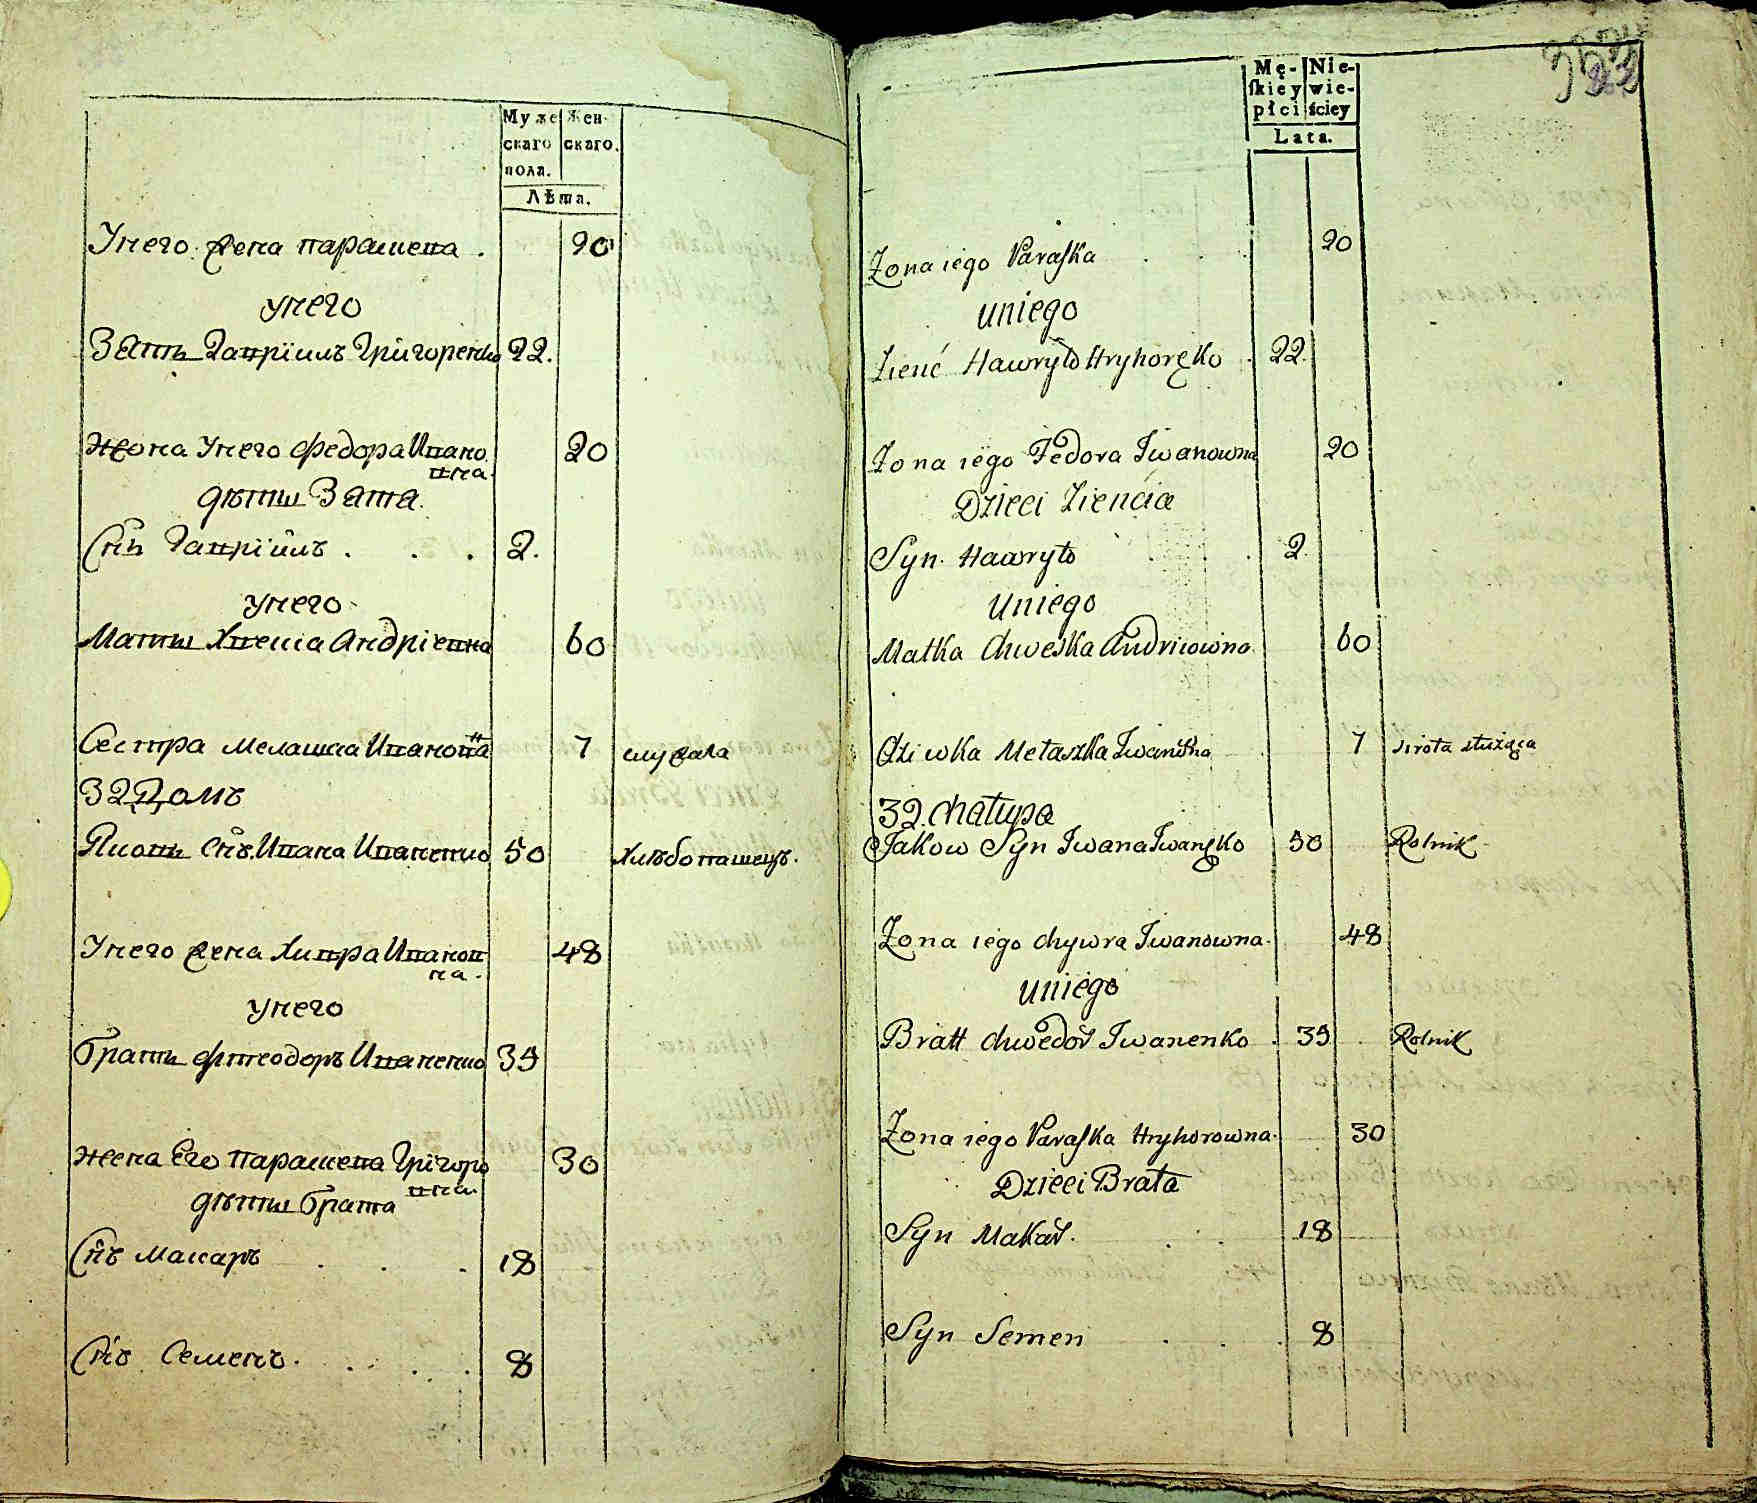 Муже Жен-
скаго скаго.
пола.
Лѣта.
Унего жена парашева . 20
унего
Зять Гаврiилъ Григоренко 22.
жона Унего Федора Ивано 20
вна.
дѣти Зятя.
Снъ Гаврiилъ . . . 2.
унего
Мати Хвеска Андрiевна 60
Сестра мелашка Иванова 7 служала
32 Домъ
Яковъ Снъ Ивана Иваненко 50 Хлѣбопашецъ.
Унего жена Хивра Иванов 48
на.
унего
братъ Фтеодоръ Иваненко 35
жена Его парашева Григоро 30
вна.
дѣти брата
Снъ Макаръ . . . 18
Снъ Семенъ. . . . . 8
Mę- Nie-
skiey wie-
płci ściey
Lata.
Zona iego Paraska . . . 20
uniego
Zienć Hawryło Hryhoręko . 22.
Zona iego Fedora Iwanowna 20
Dzieci Ziencia
Syn Hawryło . . . 2.
uniego
Matka Chweska Andriiowna 60
Dziwka Mełaszka Iwanowna . 7 sirota służąca
32. Chałupa
Jakow Syn Iwana Iwanęko 50 Rolnik
Zona iego Chywra Iwanowna. 48
uniego
Bratt Chwedor Iwanenko . 35 . Rolnik
Zona iego Paraska Hryhorowna. 30
Dzieci Brata
Syn Makar. . . . 18
Syn Semen . . . 8